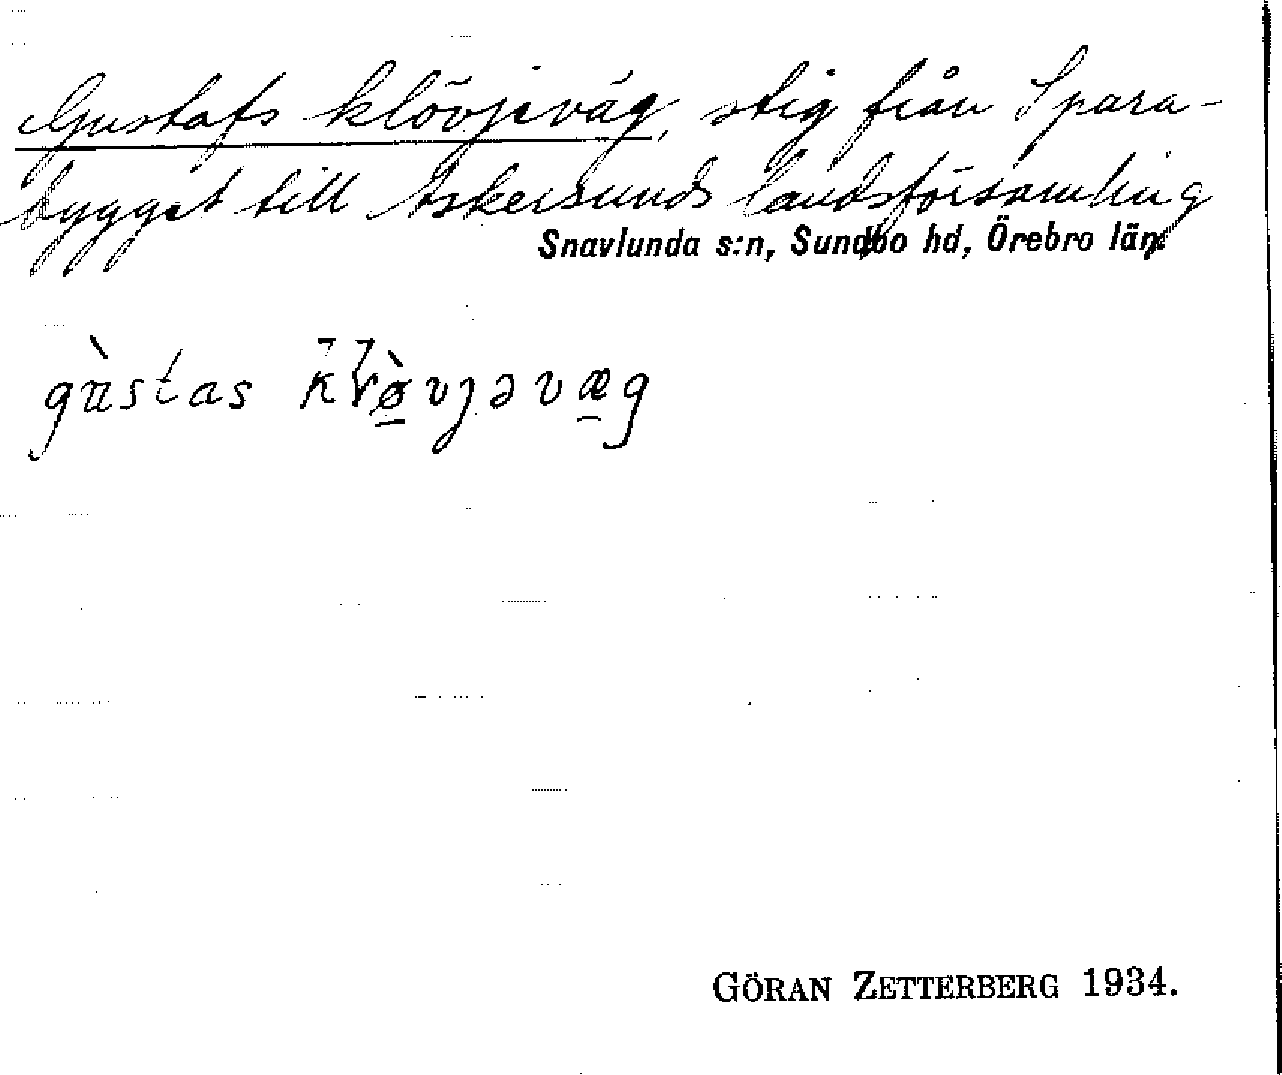 Gustafs klövjeväg, stig från Spara-
bygget till Askersunds landsförsamling
Snavlunda s:n, Sundbo hd, Örebro län.
gùstas
GÖRAN ZETTERBERG 1934.